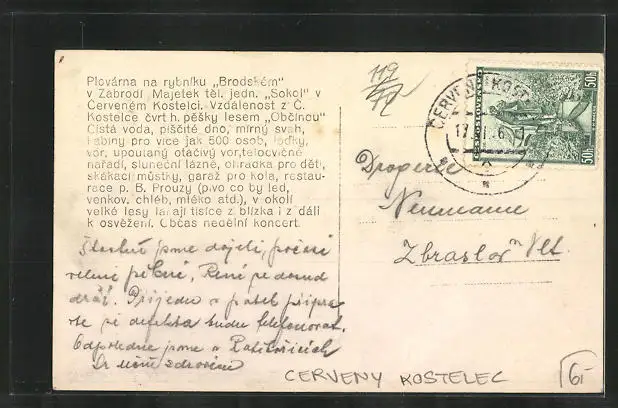 Plovárna na rybníku „Brodském“
v Zábrodí Majetek těl. jedn. „Sokol“ v
Červeném Kostelci. Vzdálenost z Č.
Kostelce čvrt h. pěšky lesem „Občinou“
Čistá voda, písčité dno, mírný svah,
kabiny pro více jak 500 osob, loďky,
vor, upoutaný otáčivý vor, tělocvičné
nářadí, sluneční lázně, ohrádka pro děti,
skákací můstky, garáž pro kola, restau-
race p. B. Prouzy (pivo co by led,
venkov. chléb, mléko atd.), v okolí
velké lesy lákají tisíce z blízka i z dáli
k osvěžení. Občas nedělní koncert.
Šťastně jsme dojeli, počasí
velmi pěkné, René se dosud
drží. Přijedu v pátek
budu telefonovat.
Odpoledne jsme v Ratibořicích
119
72
ČERVENÝ KOST
ČESKOSLOVENSKO
50h
50h
Drogerie
Neumann
Zbraslav n Vlt.
CERVENY KOSTELEC
6-